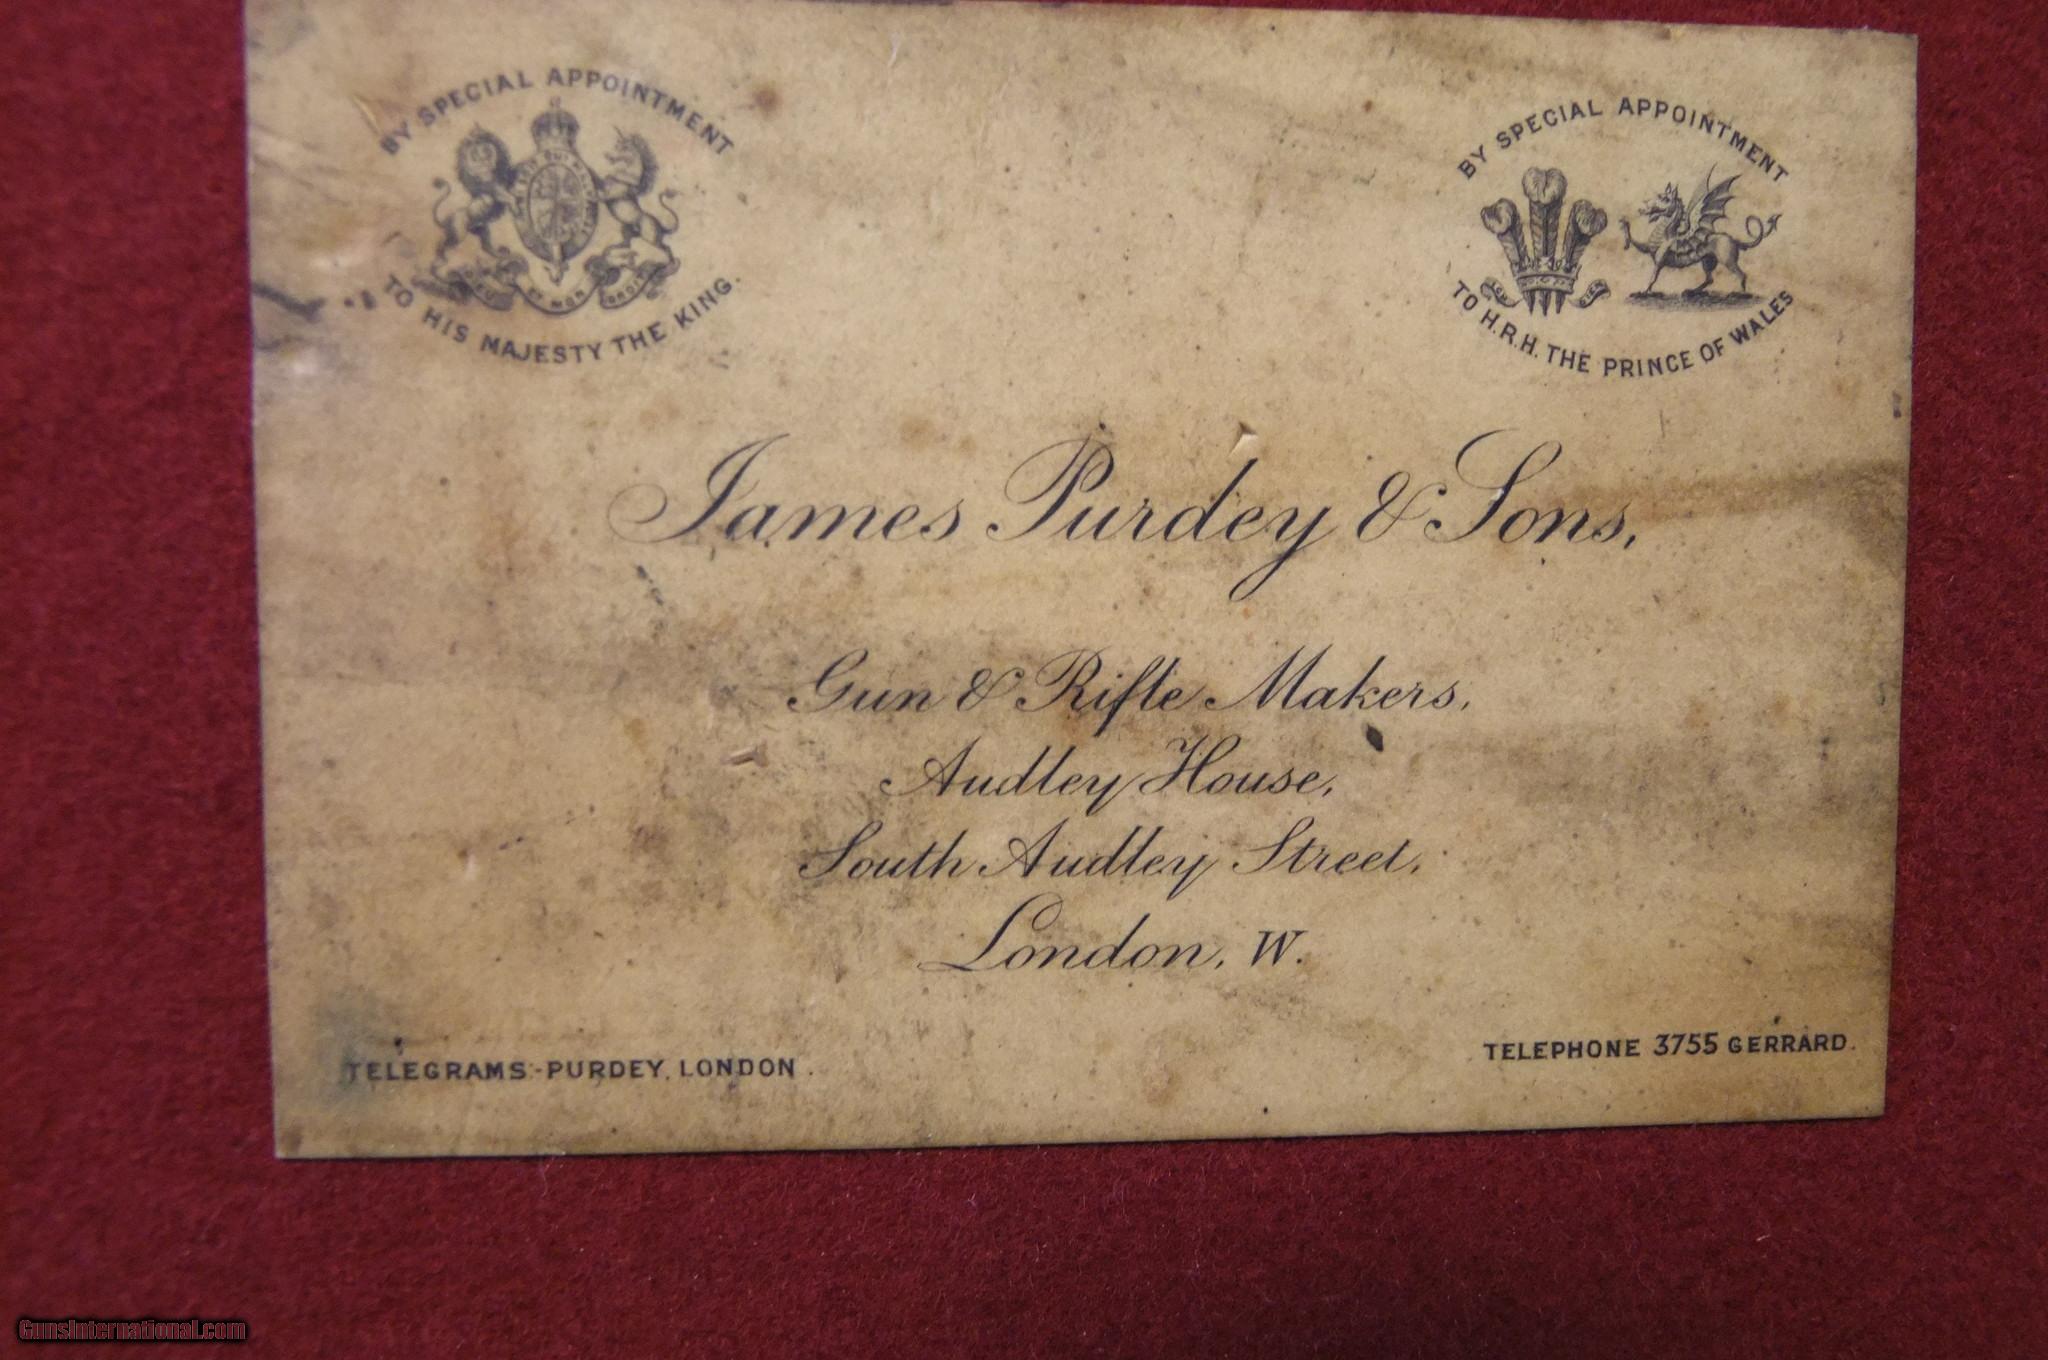 BY SPECIAL APPOINTMENT
TO HIS MAJESTY THE KING.
BY SPECIAL APPOINTMENT
TO H.R.H. THE PRINCE OF WALES
James Purdey & Sons,
Gun & Rifle Makers,
Audley House,
South Audley Street,
London, W.
TELEGRAMS:-PURDEY, LONDON.
TELEPHONE 3755 GERRARD.
GunsInternational.com